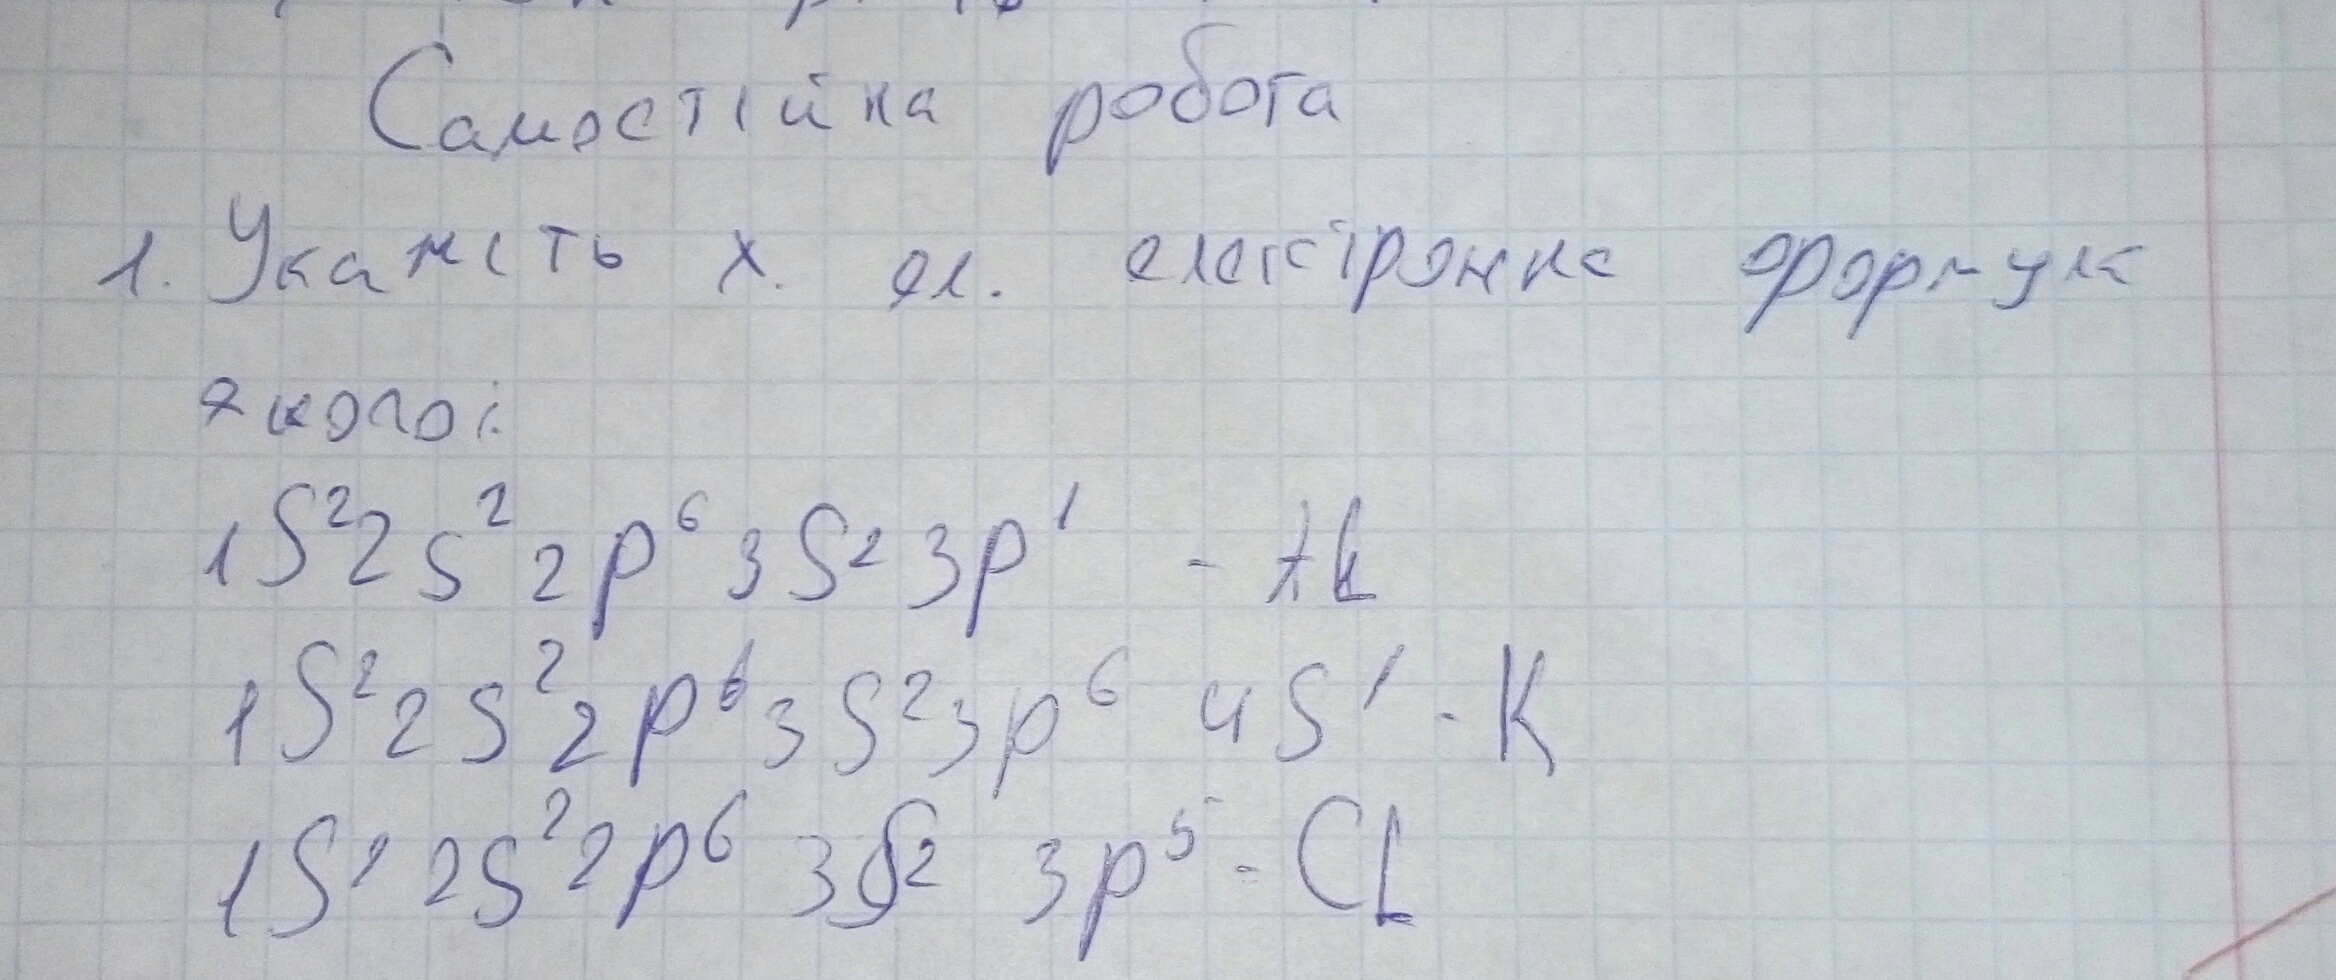 Самостійна робота
1. Укажіть х. ел. електронна формула
якого:
1S²2s²2p⁶3S²3p¹ - Al
1S²2s²2p⁶3S²3p⁶4S¹ - K
1S²2s²2p⁶3S²3p⁵ - CL